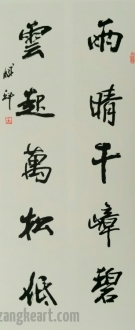 雨晴千嶂碧
雲起萬松低
zangheart.com